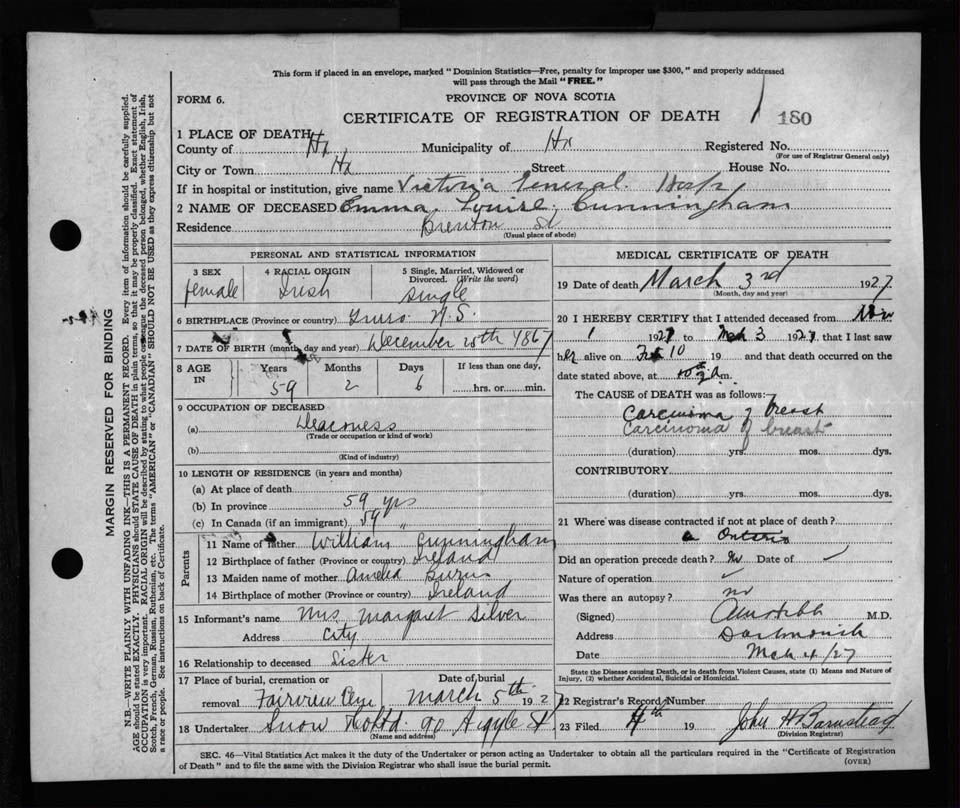 This form if placed in an envelope, marked "Dominion Statistics—Free, penalty for improper use $300," and properly addressed
will pass through the Mail "FREE."
FORM 6.
PROVINCE OF NOVA SCOTIA
CERTIFICATE OF REGISTRATION OF DEATH
180
1 PLACE OF DEATH
County of Hx Municipality of Hx Registered No.
(For use of Registrar General only)
City or Town Hx Street House No.
If in hospital or institution, give name Victoria General Hosp
2 NAME OF DECEASED Emma Louise Cunningham
Residence Brenton St
(Usual place of abode)
PERSONAL AND STATISTICAL INFORMATION
3 SEX 4 RACIAL ORIGIN 5 Single, Married, Widowed or
Divorced. (Write the word)
female Irish single
6 BIRTHPLACE (Province or country) Truro N.S.
7 DATE OF BIRTH (month, day and year) December 25th 1867
8 AGE IN Years Months Days If less than one day,
59 2 6 hrs. or min.
9 OCCUPATION OF DECEASED
(a) Deaconess
(Trade or occupation or kind of work)
(b)
(Kind of industry)
10 LENGTH OF RESIDENCE (in years and months)
(a) At place of death
(b) In province 59 yrs
(c) In Canada (if an immigrant) 59 "
Parents
11 Name of father William Cunningham
12 Birthplace of father (Province or country) Ireland
13 Maiden name of mother Amelia
14 Birthplace of mother (Province or country) Ireland
15 Informant's name Mrs Margaret Silver
Address City
16 Relationship to deceased Sister
17 Place of burial, cremation or Date of burial
removal Fairview Cem March 5th 1927
18 Undertaker Snow & Co Ltd 90 Argyle St
(Name and address)
MEDICAL CERTIFICATE OF DEATH
19 Date of death March 3rd 1927
(Month, day and year)
20 I HEREBY CERTIFY that I attended deceased from Nov
1 192 to Mch 3 1927 that I last saw
her alive on Feb 10 19 and that death occurred on the
date stated above, at m.
The CAUSE OF DEATH was as follows:—
Carcinoma of breast
Carcinoma of breast
(duration) yrs. mos. dys.
CONTRIBUTORY
(duration) yrs. mos. dys.
21 Where was disease contracted if not at place of death?
Ontario
Did an operation precede death? No Date of ✓
Nature of operation ✓
Was there an autopsy? no
(Signed) M.D.
Address Dartmouth
Date Mch 4/27
State the Disease causing Death, or in death from Violent Causes, state (1) Means and Nature of
Injury, (2) whether Accidental, Suicidal or Homicidal.
22 Registrar's Record Number
23 Filed 4th 19 John H Barnstead
(Division Registrar)
SEC. 46—Vital Statistics Act makes it the duty of the Undertaker or person acting as Undertaker to obtain all the particulars required in the "Certificate of Registration
of Death" and to file the same with the Division Registrar who shall issue the burial permit.
(OVER)
MARGIN RESERVED FOR BINDING
N.B.—WRITE PLAINLY WITH UNFADING INK—THIS IS A PERMANENT RECORD. Every item of information should be carefully supplied.
AGE should be stated EXACTLY. PHYSICIANS should STATE CAUSE OF DEATH in plain terms, so that it may be properly classified. Exact statement of
OCCUPATION is very important. RACIAL ORIGIN will be described by stating to what people or tongue the deceased person belonged, whether English, Irish,
Scotch, French, German, Russian, Ruthenian, etc. The terms "AMERICAN" or "CANADIAN" SHOULD NOT BE USED as they express citizenship but not
a race or people. See instructions on back of Certificate.